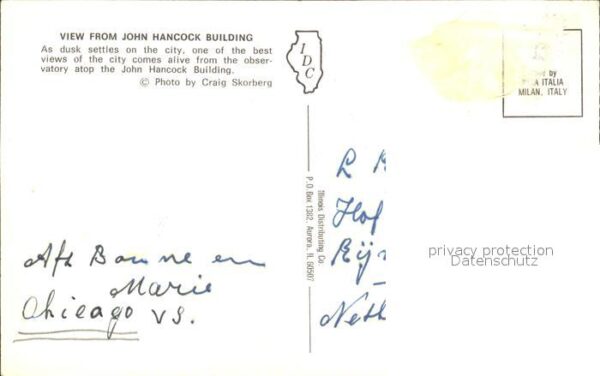 VIEW FROM JOHN HANCOCK BUILDING
As dusk settles on the city, one of the best
views of the city comes alive from the obser-
vatory atop the John Hancock Building.
© Photo by Craig Skorberg
IDC
by
ITALIA
MILAN, ITALY
Illinois Distributing Co
P. O Box 1302, Aurora, Il. 60507
Afz Bonne en
Marie
Chicago VS.
L
Hof
Rijn
Neth
privacy protection
Datenschutz